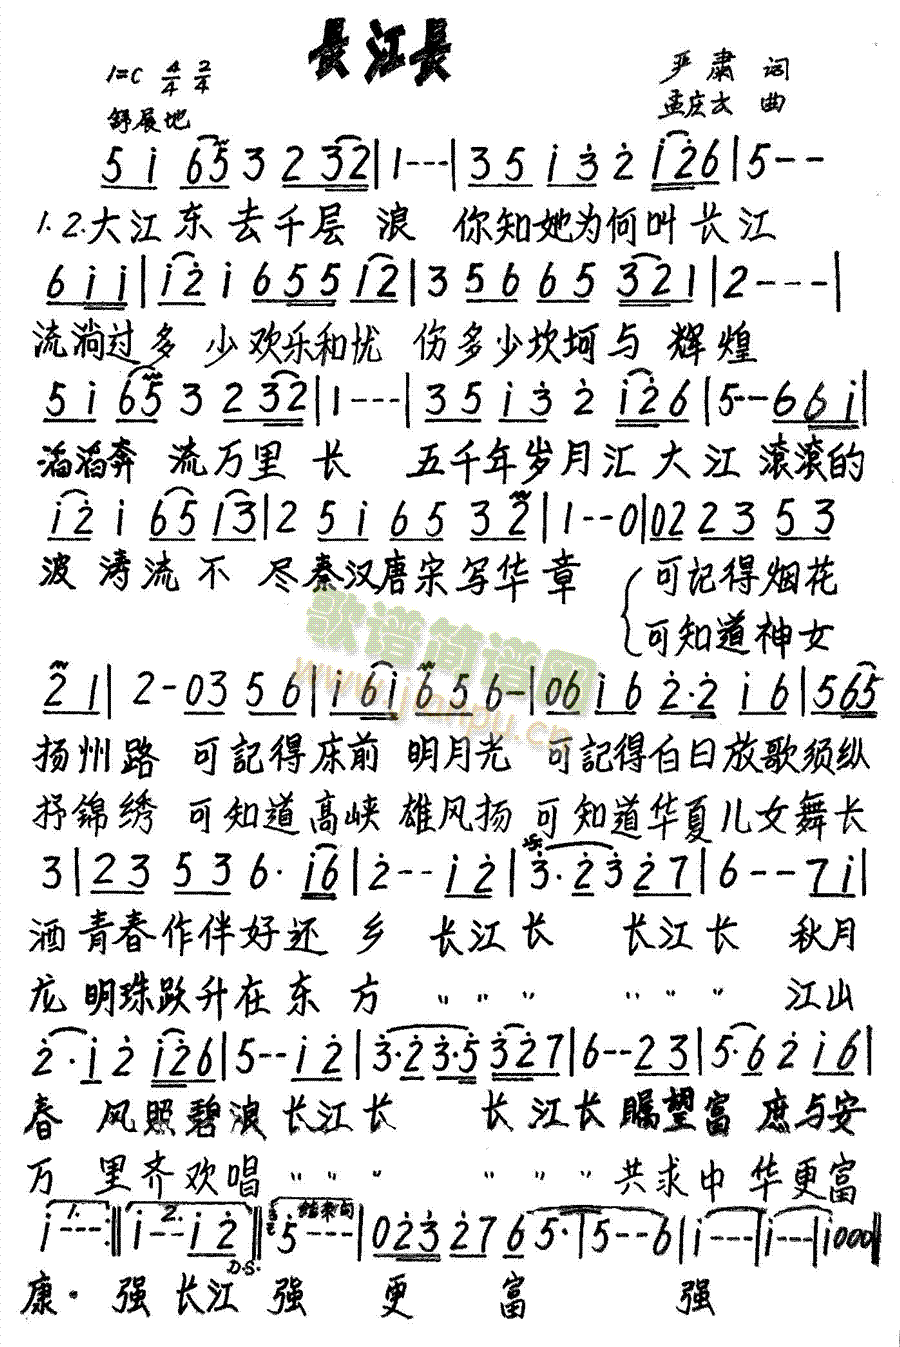 長江長
1=C 4/4 2/4
严肃 词
孟庆云 曲
舒展地
5 i 6 5 3 2 3 2 | 1 - - - | 3 5 i 3 2 i 2 6 | 5 - -
1.2.大江东去千层浪 你知她为何叫长江
6 i i | i 2 i 6 5 5 i 2 | 3 5 6 6 5 3 2 1 | 2 - - - |
流淌过多少欢乐和忧伤多少坎坷与辉煌
5 i 6 5 3 2 3 2 | 1 - - - | 3 5 i 3 2 i 2 6 | 5 - - 6 6 i |
滔滔奔流万里长 五千年岁月汇大江滚滚的
i 2 i 6 5 i 3 | 2 5 i 6 5 3 2 | 1 - - 0 | 0 2 2 3 5 3
波涛流不尽秦汉唐宋写华章 可記得烟花
可知道神女
2 1 | 2 - 0 3 5 6 | i 6 i 6 5 6 - | 0 6 i 6 2 · 2 i 6 | 5 6 5
扬州路 可記得床前明月光 可記得白日放歌须纵
抒锦绣 可知道高峡雄风扬 可知道华夏儿女舞长
3 | 2 3 5 3 6 · i 6 | 2 - - i 2 | 3 · 2 3 2 7 | 6 - - 7 i |
酒青春作伴好还乡 长江长 长江长 秋月
龙明珠跃升在东方 〃 〃 〃 〃 〃 〃 江山
2 · i 2 i 2 6 | 5 - - i 2 | 3 · 2 3 · 5 3 2 7 | 6 - - 2 3 | 5 · 6 2 i 6 |
春风照碧浪长江长 长江长瞩望富庶与安
万里齐欢唱 〃 〃 〃 〃 〃 〃 共求中华更富
1. 2. 结束句
i - - - :|| i - - i 2 || 5 - - - | 0 2 3 2 7 6 5 · | 5 - - 6 | i - - - | i - - | i 0 0 0 ||
D.S.
康·强长江强更富强
歌谱简谱网
www.jianpu.cn